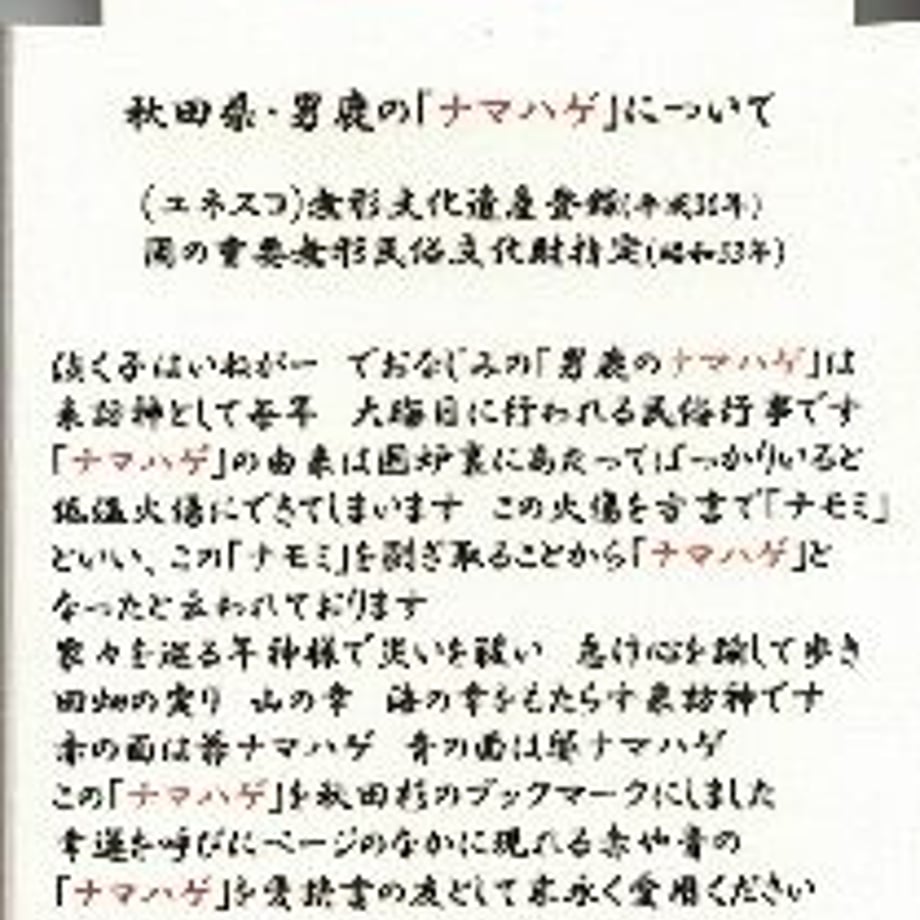 秋田県・男鹿の「ナマハゲ」について
(ユネスコ)無形文化遺産登録(平成30年)
国の重要無形民俗文化財指定(昭和53年)
泣く子はいねがー でおなじみの「男鹿のナマハゲ」は
来訪神として毎年 大晦日に行われる民俗行事です
「ナマハゲ」の由来は囲炉裏にあたってばっかりいると
低温火傷にできてしまいます この火傷を方言で「ナモミ」
といい、この「ナモミ」を剥ぎ取ることから「ナマハゲ」と
なったと云われております
家々を巡る年神様で災いを祓い 怠け心を諭して歩き
田畑の実り 山の幸 海の幸をもたらす来訪神です
赤の面は爺ナマハゲ 青の面は婆ナマハゲ
この「ナマハゲ」を秋田杉のブックマークにしました
幸運を呼びにページのなかに現れる赤や青の
「ナマハゲ」を愛読書の友として末永く愛用ください